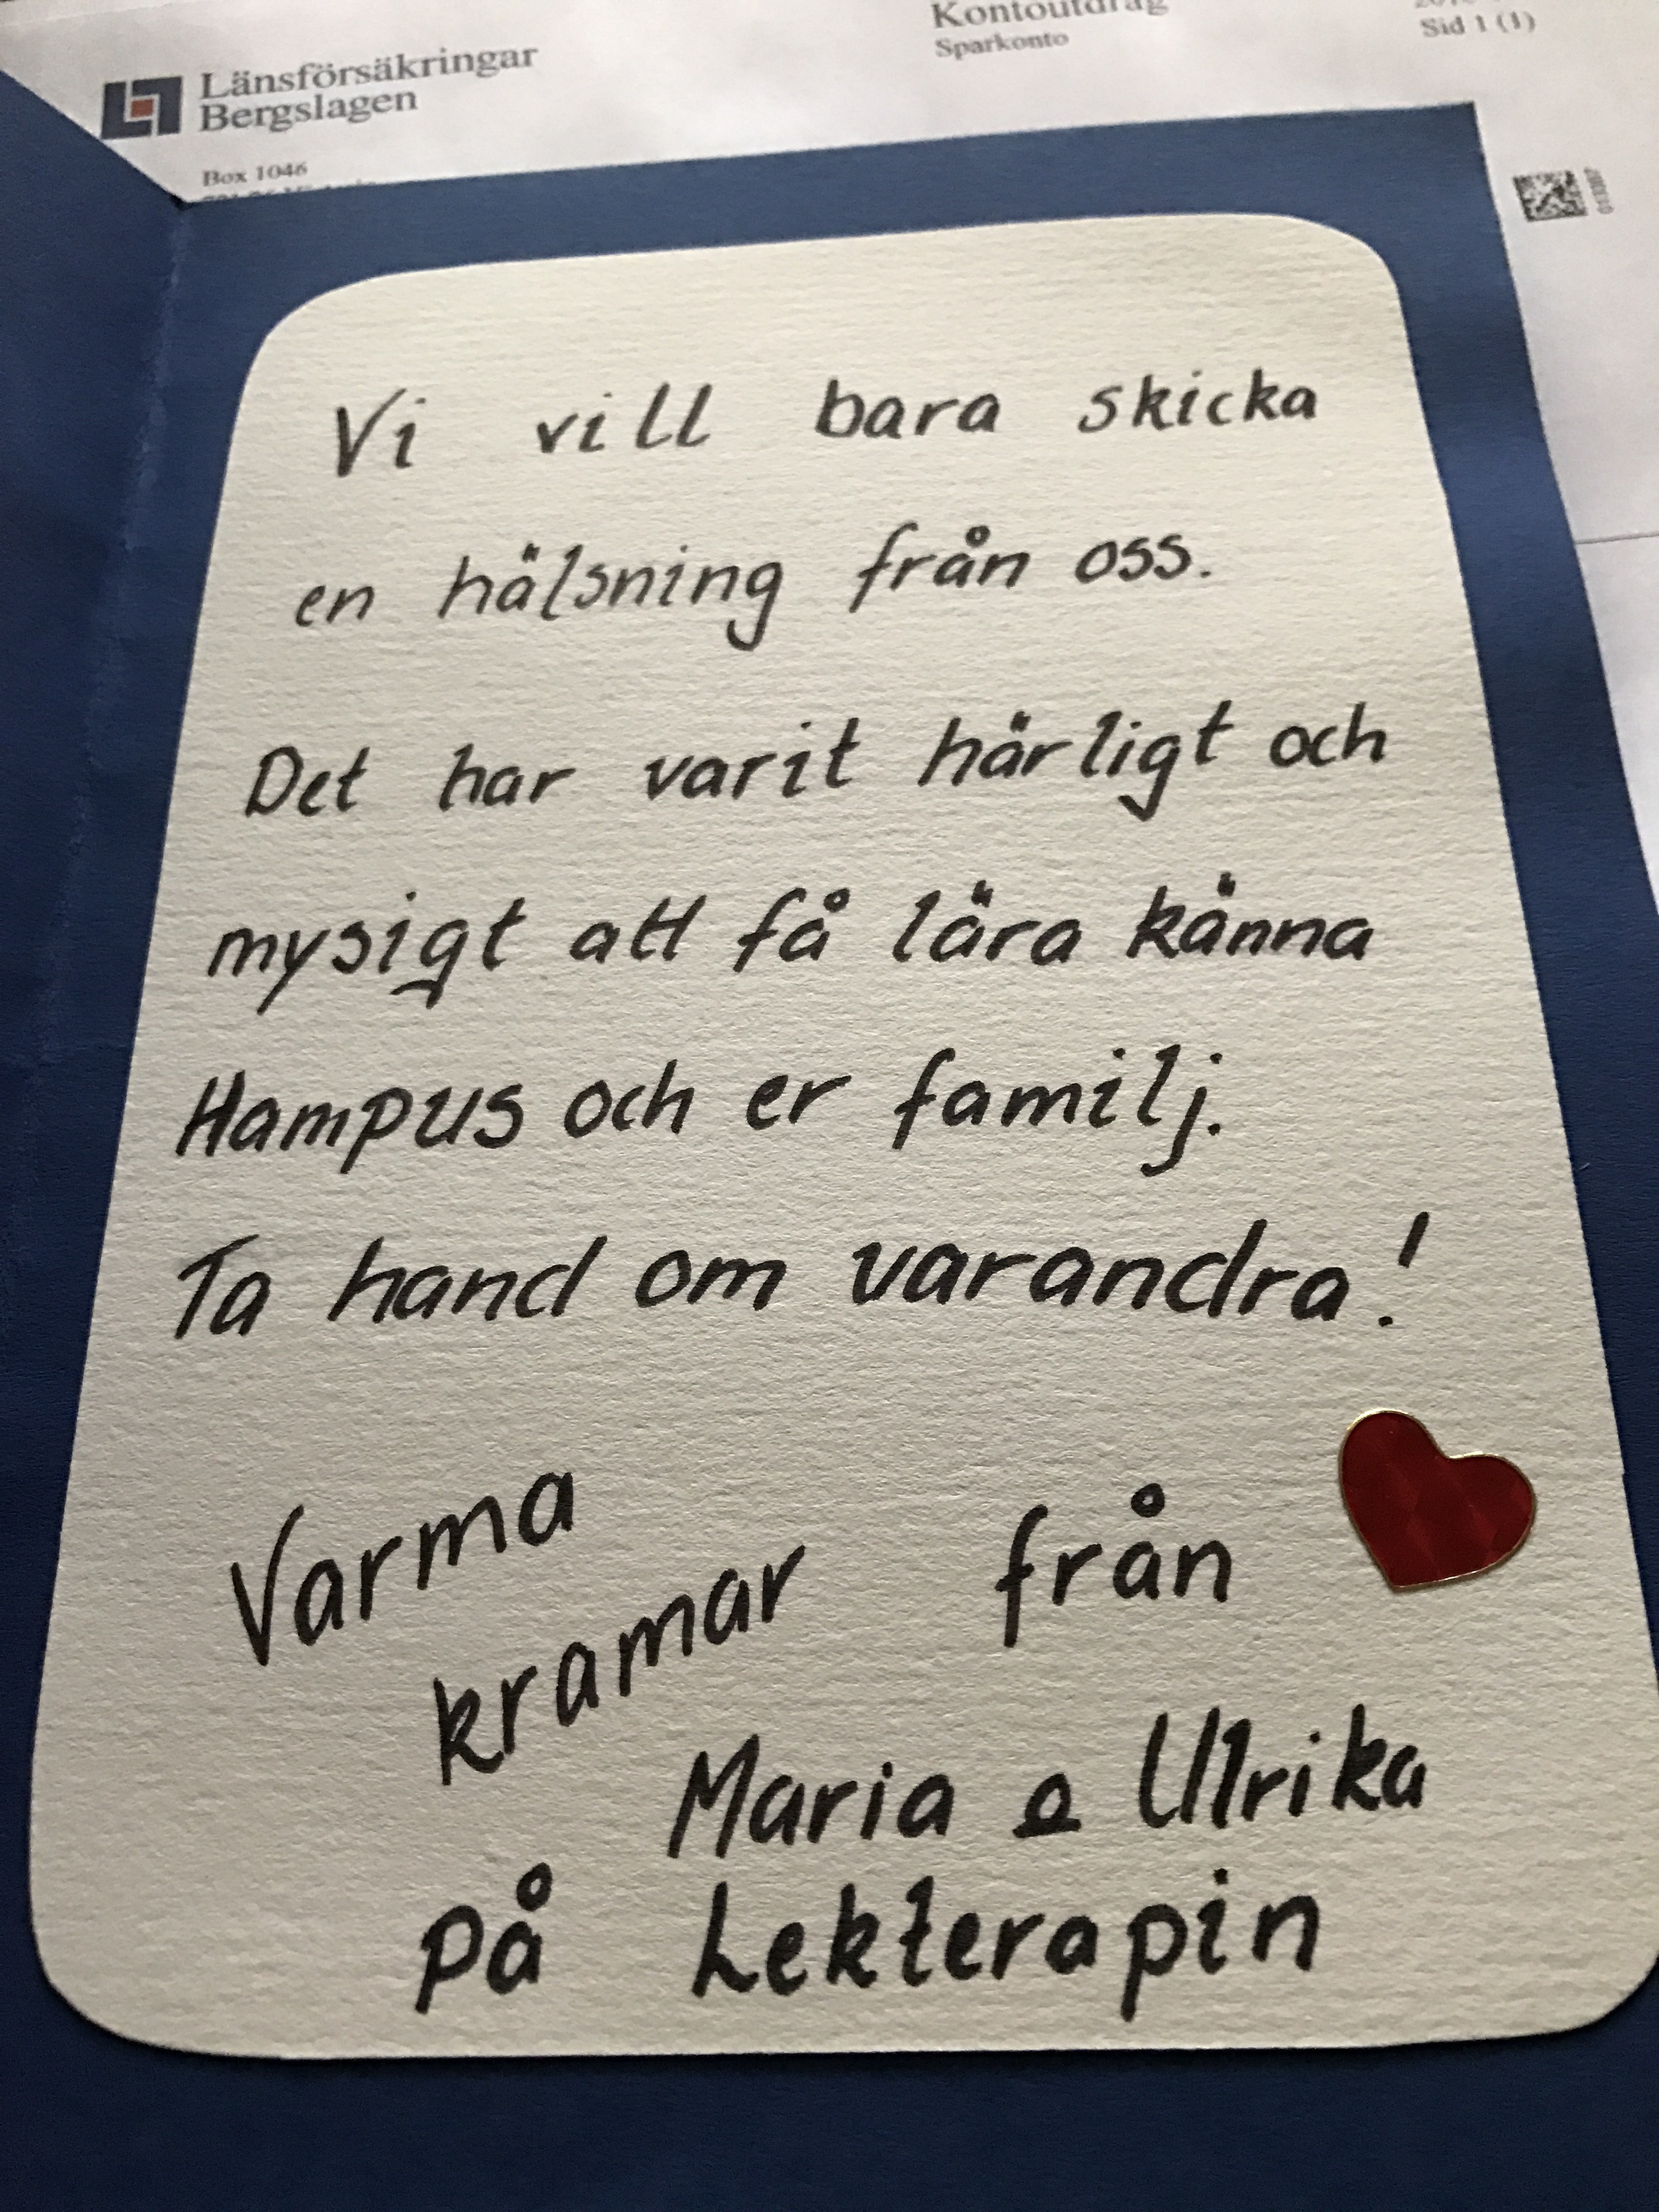 Länsförsäkringar
Bergslagen
Kontoutdrag
Sparkonto
Sid 1 (1)
Box 1046
Vi vill bara skicka
en hälsning från oss.
Det har varit härligt och
mysigt att få lära känna
Hampus och er familj.
Ta hand om varandra!
Varma
kramar från
Maria o Ulrika
på Lekterapin